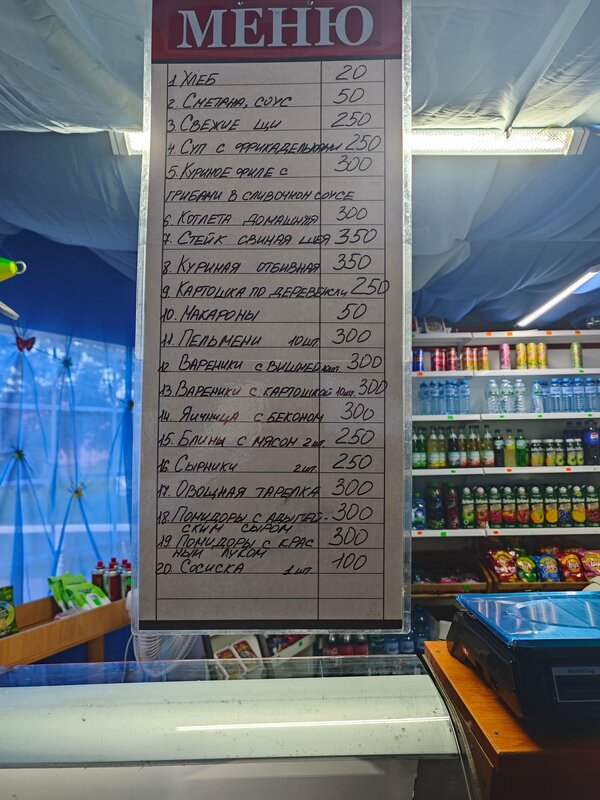 МЕНЮ
1. ХЛЕБ 20
2. СМЕТАНА, СОУС 50
3. СВЕЖИЕ ЩИ 250
4. СУП С ФРИКАДЕЛЬКАМИ 250
5. КУРИНОЕ ФИЛЕ С 300
ГРИБАМИ В СЛИВОЧНОМ СОУСЕ
6. КОТЛЕТА ДОМАШНЯЯ 300
7. СТЕЙК СВИНАЯ ШЕЯ 350
8. КУРИНАЯ ОТБИВНАЯ 350
9. КАРТОШКА ПО ДЕРЕВЕНСКИ 250
10. МАКАРОНЫ 50
11. ПЕЛЬМЕНИ 10 ШТ. 300
12. ВАРЕНИКИ С ВИШНЕЙ 10 ШТ. 300
13. ВАРЕНИКИ С КАРТОШКОЙ 10 ШТ. 300
14. ЯИЧНИЦА С БЕКОНОМ 300
15. БЛИНЫ С МЯСОМ 2 ШТ. 250
16. СЫРНИКИ 2 ШТ. 250
17. ОВОЩНАЯ ТАРЕЛКА 300
18. ПОМИДОРЫ С АДЫГЕЙ- 300
СКИМ СЫРОМ
19 ПОМИДОРЫ С КРАС 300
НЫМ ЛУКОМ
20. СОСИСКА 1 ШТ. 100